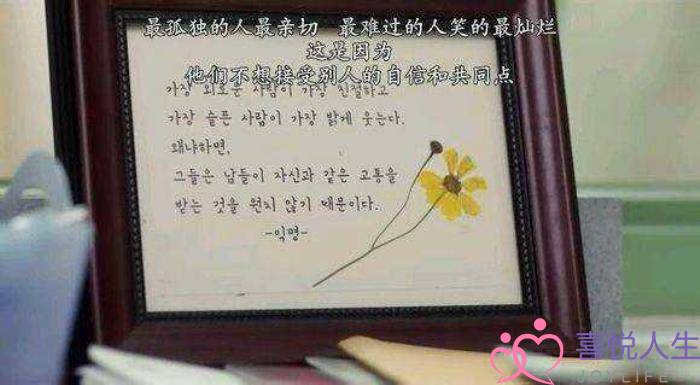 最孤独的人最亲切 最难过的人笑的最灿烂
这是因为
他们不想接受别人的自信和共同点
가장 외로운 사람이 가장 친절하고
가장 슬픈 사람이 가장 밝게 웃는다.
왜냐하면,
그들은 남들이 자신과 같은 고통을
받는 것을 원치 않기 때문이다.
-익명-
喜悦人生
JOYLIFE